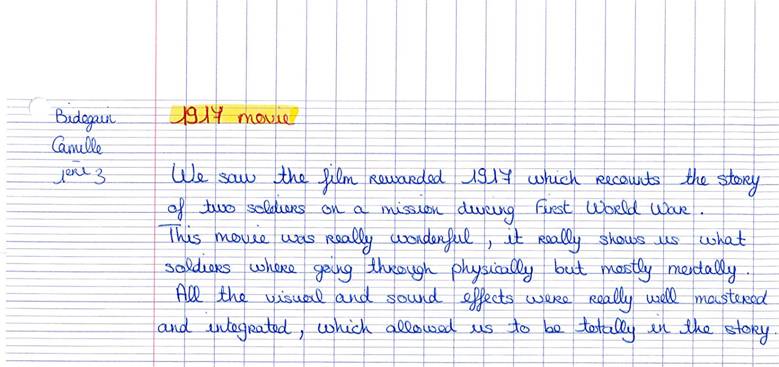 Bidegain
Camille
1ère 3
1917 movie
We saw the film rewarded 1917 which recounts the story
of two soldiers on a mission during First World War.
This movie was really wonderful, it really shows us what
soldiers where going through physically but mostly mentally.
All the visual and sound effects were really well mastered
and integrated, which allowed us to be totally in the story.